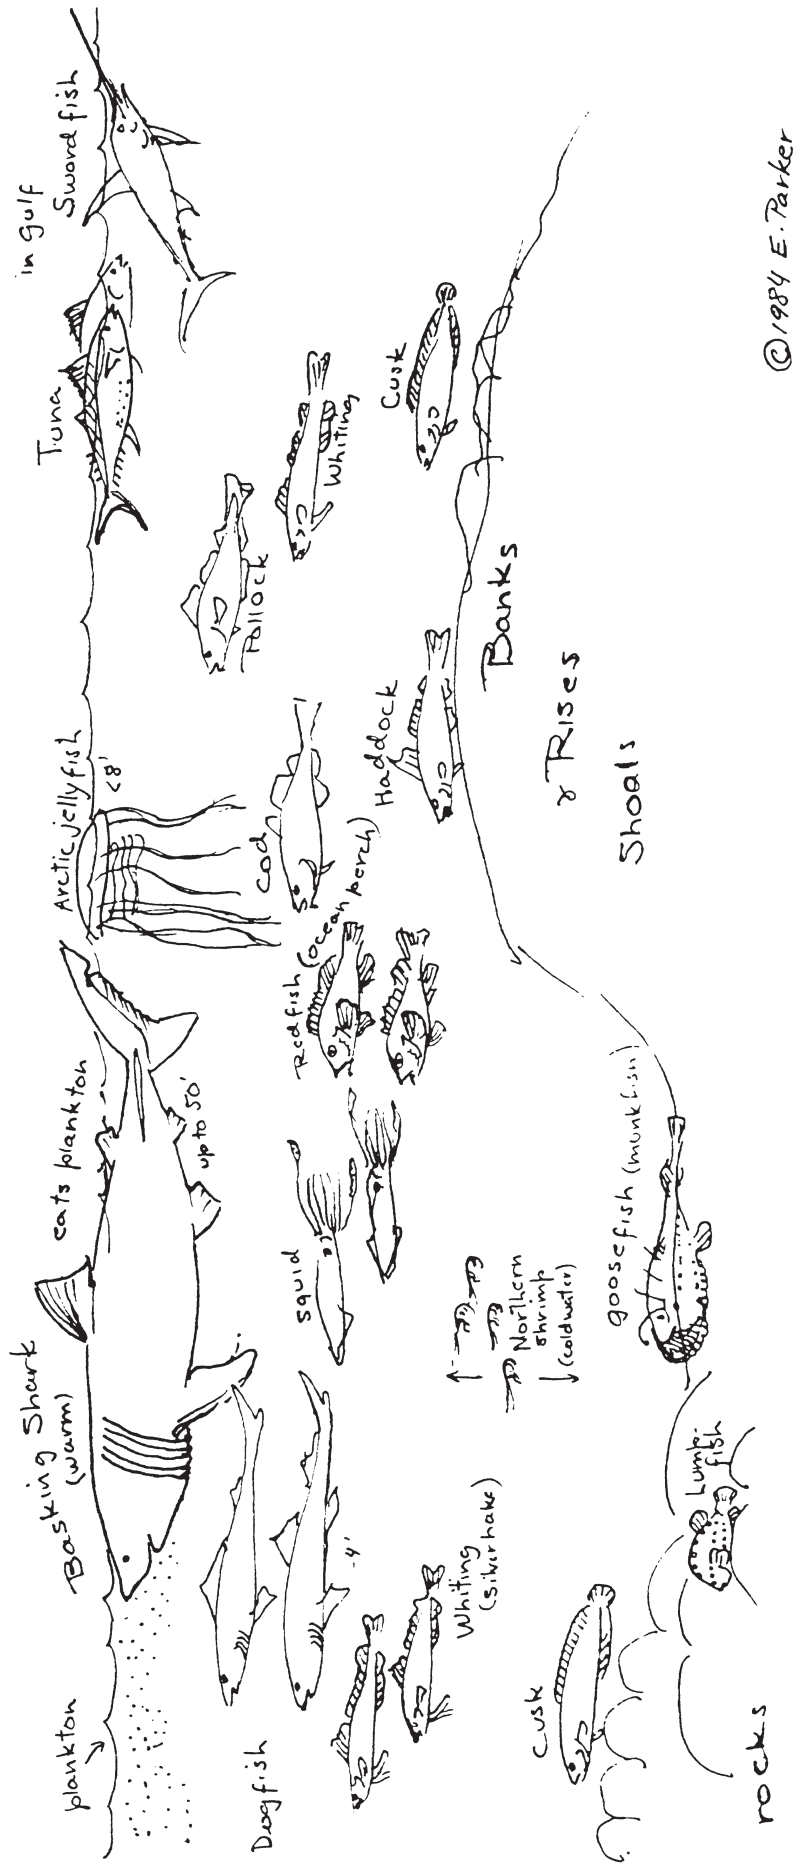 plankton
Basking Shark
(warm)
eats plankton
up to 50'
Arctic jellyfish
<8'
Tuna
in gulf
Swordfish
Dogfish
-4'
squid
Redfish (ocean perch)
cod
Pollock
Whiting
Haddock
Cusk
Whiting
(silver hake)
Northern
shrimp
(coldwater)
cusk
Lump-
fish
goosefish (munkfish)
Banks
& Rises
Shoals
rocks
©1984 E. Parker